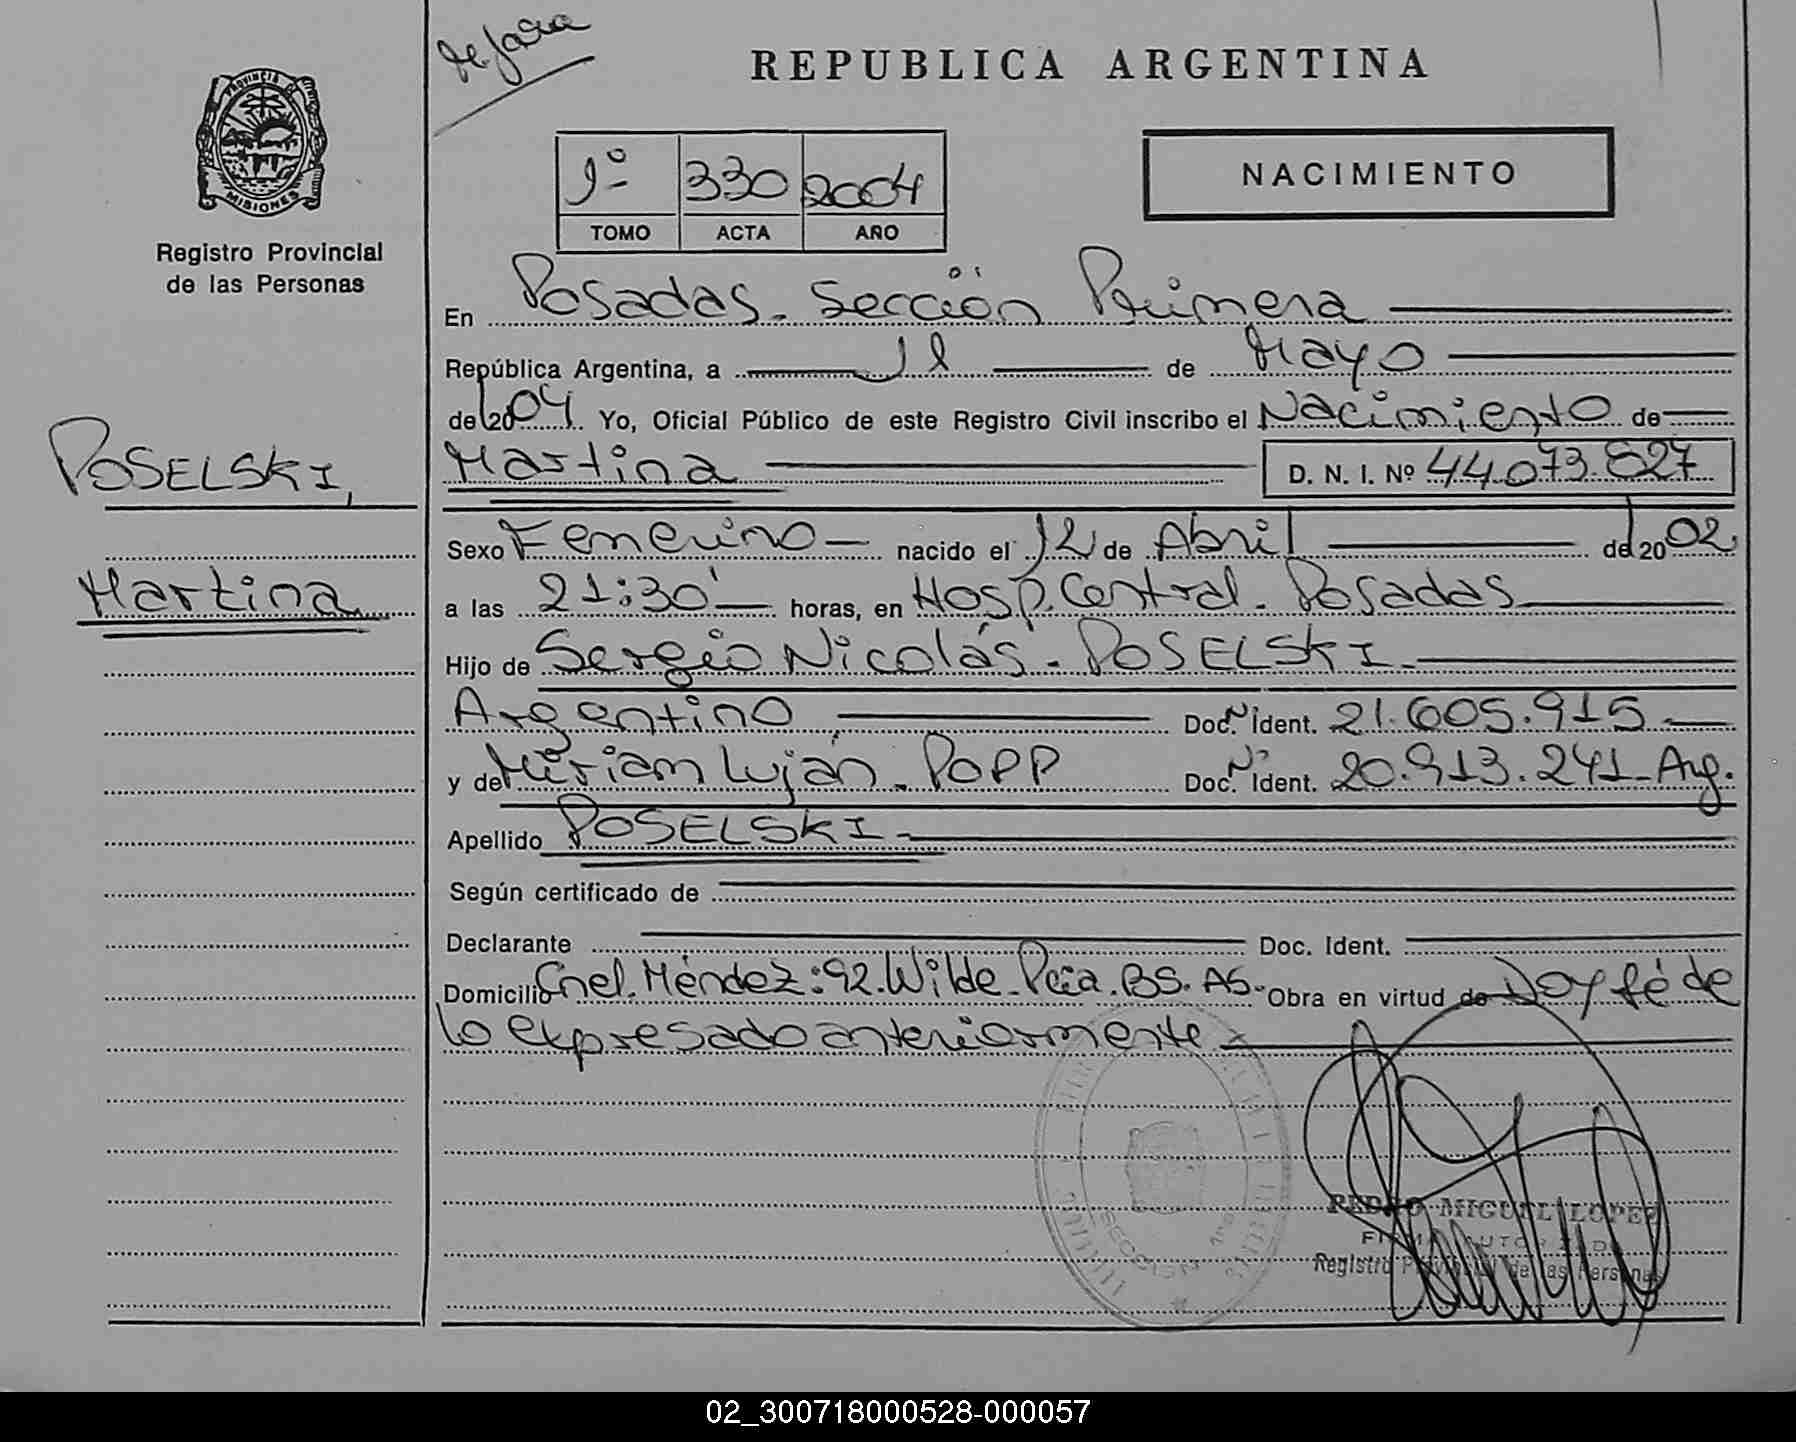 de Jara
REPUBLICA ARGENTINA
PROVINCIA DE
MISIONES
Registro Provincial
de las Personas
1º 330 2004
TOMO ACTA AÑO
NACIMIENTO
En Posadas. Sección Primera
República Argentina, a 11 de Mayo
de 2004 Yo, Oficial Público de este Registro Civil inscribo el Nacimiento de
POSELSKI,
Martina
Martina D. N. I. Nº 44.073.827
Sexo Femenino nacido el 12 de Abril de 2002
a las 21:30' horas, en Hosp. Central. Posadas
Hijo de Sergio Nicolás. POSELSKI
Argentino Doc. Nº Ident. 21.605.915
y de Miriam Luján. POPP Doc. Nº Ident. 20.913.241 Arg.
Apellido POSELSKI
Según certificado de
Declarante Doc. Ident.
Domicilio Cnel. Méndez: 92. Wilde. Pcia. BS. AS. Obra en virtud de Doy fé de
lo expresado anteriormente
PEDRO MIGUEL LOPEZ
FIRMA AUTORIZADA
Registro Provincial de las Personas
02_300718000528-000057